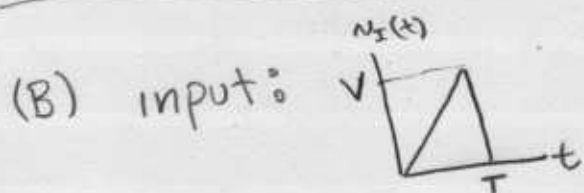 (B) input:
v_I(t)
V
t
T